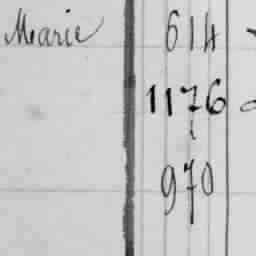 Marie 614
1176
970